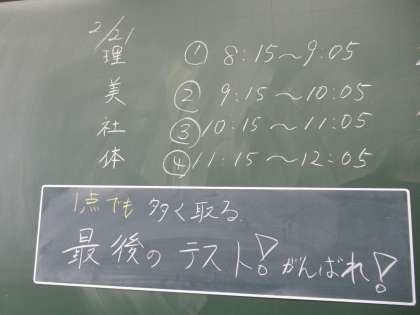 2/21
理 ① 8:15～9:05
美 ② 9:15～10:05
社 ③ 10:15～11:05
体 ④ 11:15～12:05
1点でも 多く取る.
最後の テスト! がんばれ!